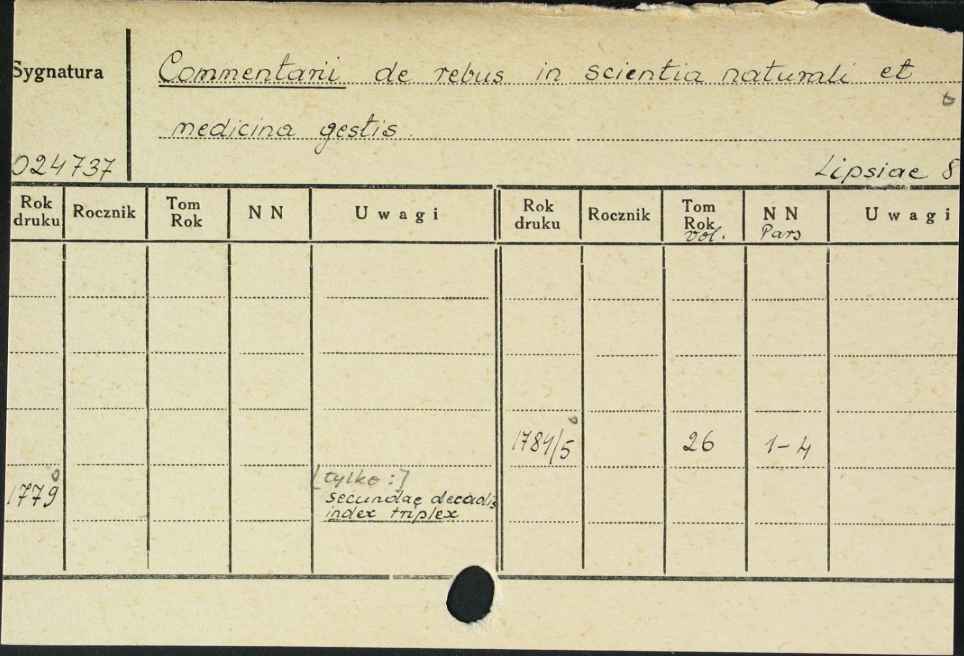 Sygnatura
Commentarii de rebus in scientia naturali et
medicina gestis.
024737
Lipsiae 8
Rok druku Rocznik Tom Rok NN Uwagi Rok druku Rocznik Tom Rok vol. NN Pars Uwagi
1784/5 26 1-4
1779 [tylko:]
secundae decadis
index triplex